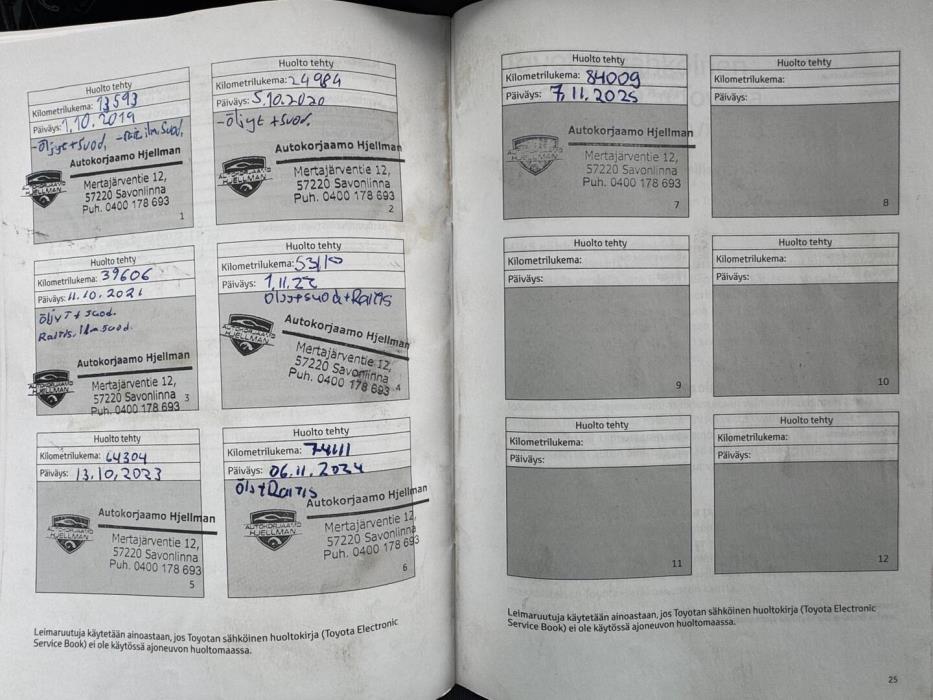 Huolto tehty
Kilometrilukema: 13593
Päiväys: 1.10.2019
-Öljyt+Suod, -Rait.ilm.Suod,
Autokorjaamo Hjellman
AUTOKORJAAMO
HJELLMAN
Mertajärventie 12,
57220 Savonlinna
Puh. 0400 178 693
1
Huolto tehty
Kilometrilukema: 24984
Päiväys: 5.10.2020
-Öljyt +Suod.
Autokorjaamo Hjellman
AUTOKORJAAMO
HJELLMAN
Mertajärventie 12,
57220 Savonlinna
Puh. 0400 178 693
2
Huolto tehty
Kilometrilukema: 39606
Päiväys: 11.10.2021
ÖljyT + Suod.
Raitis.ilm Suod.
Autokorjaamo Hjellman
AUTOKORJAAMO
HJELLMAN
Mertajärventie 12,
57220 Savonlinna
Puh. 0400 178 693
3
Huolto tehty
Kilometrilukema: 53110
Päiväys: 1.11.22
+Raitis
Autokorjaamo Hjellman
AUTOKORJAAMO
HJELLMAN
Mertajärventie 12,
57220 Savonlinna
Puh. 0400 178 693
4
Huolto tehty
Kilometrilukema: 64304
Päiväys: 13.10,2023
Autokorjaamo Hjellman
AUTOKORJAAMO
HJELLMAN
Mertajärventie 12,
57220 Savonlinna
Puh. 0400 178 693
5
Huolto tehty
Kilometrilukema: 74111
Päiväys: 06.11.2024
Autokorjaamo Hjellman
AUTOKORJAAMO
HJELLMAN
Mertajärventie 12,
57220 Savonlinna
Puh. 0400 178 693
6
Leimaruutuja käytetään ainoastaan, jos Toyotan sähköinen huoltokirja (Toyota Electronic
Service Book) ei ole käytössä ajoneuvon huoltomaassa.
Huolto tehty
Kilometrilukema: 84009
Päiväys: 7.11.2025
Autokorjaamo Hjellman
AUTOKORJAAMO
HJELLMAN
Mertajärventie 12,
57220 Savonlinna
Puh. 0400 178 693
7
Huolto tehty
Kilometrilukema:
Päiväys:
8
Huolto tehty
Kilometrilukema:
Päiväys:
9
Huolto tehty
Kilometrilukema:
Päiväys:
10
Huolto tehty
Kilometrilukema:
Päiväys:
11
Huolto tehty
Kilometrilukema:
Päiväys:
12
Leimaruutuja käytetään ainoastaan, jos Toyotan sähköinen huoltokirja (Toyota Electronic
Service Book) ei ole käytössä ajoneuvon huoltomaassa.
25